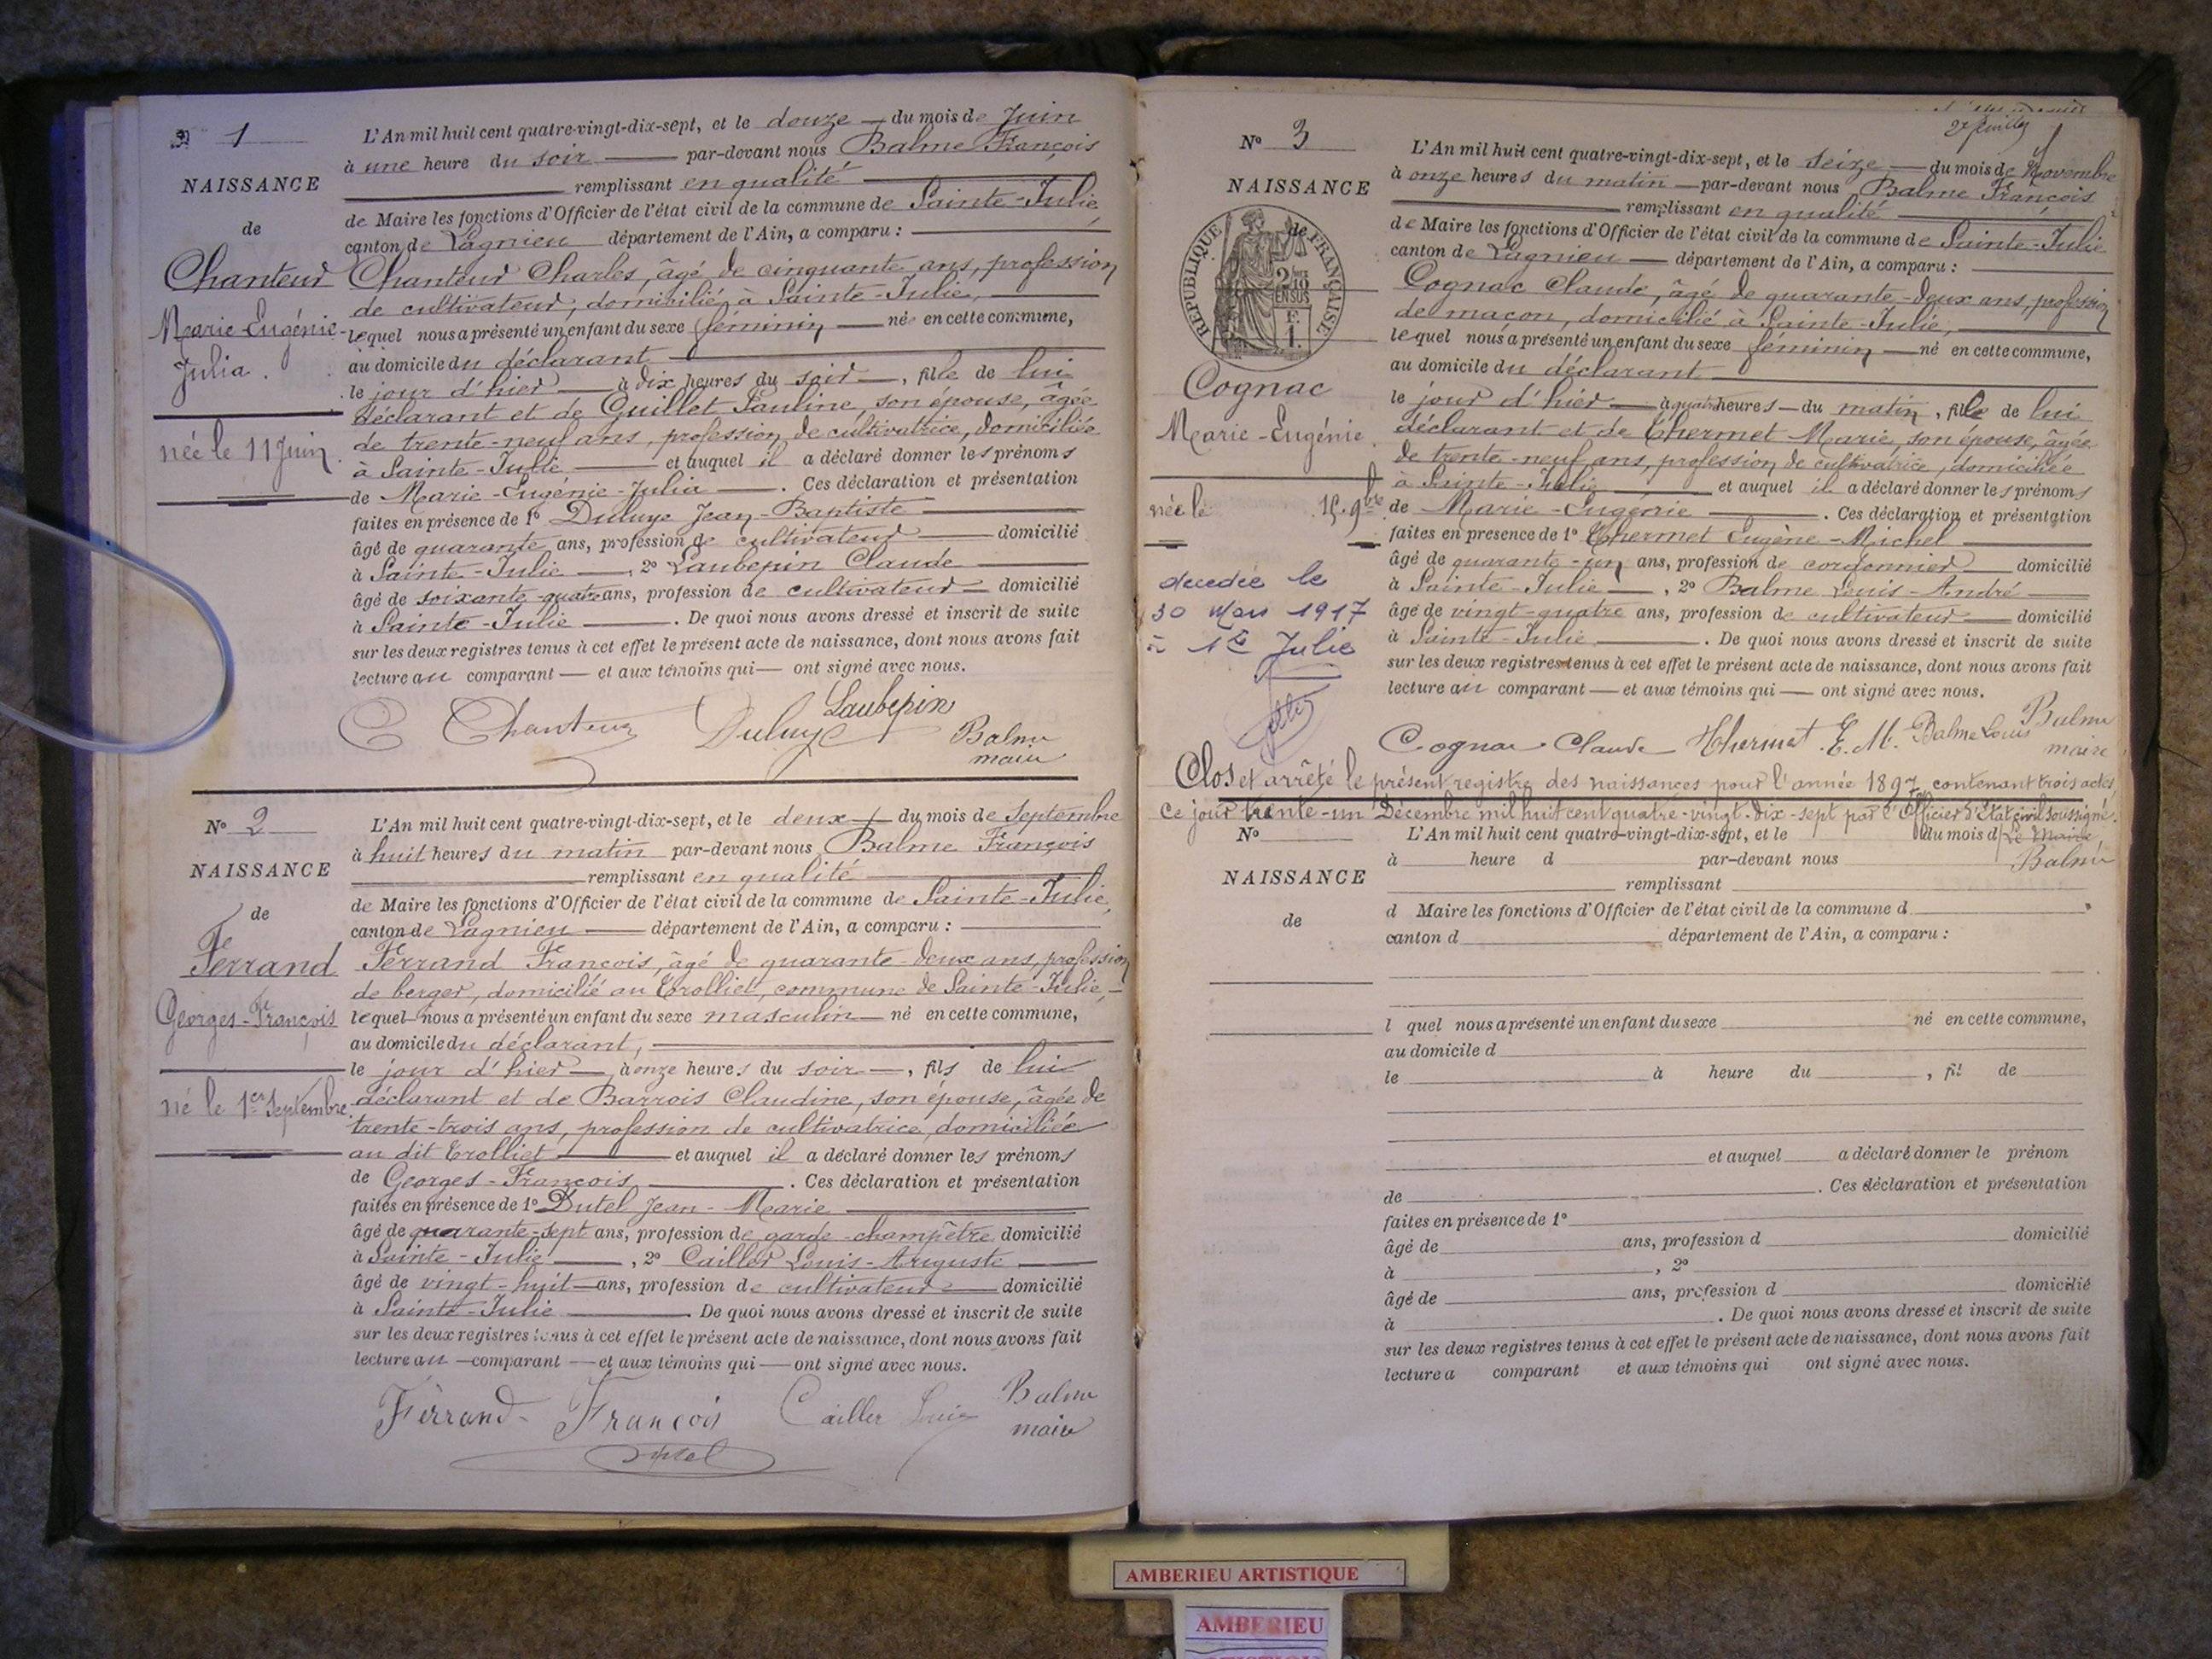 N° 1
NAISSANCE
de
Chanteur
Marie-Eugénie-
Julia.
née le 11 Juin.
L'An mil huit cent quatre-vingt-dix-sept, et le douze du mois de Juin
à une heure du soir par-devant nous Balme François
remplissant en qualité
de Maire les fonctions d'Officier de l'état civil de la commune de Sainte-Julie,
canton de Lagnieu département de l'Ain, a comparu :
Chanteur Charles, âgé de cinquante ans, profession
de cultivateur, domicilié à Sainte-Julie,
lequel nous a présenté un enfant du sexe féminin né en cette commune,
au domicile du déclarant
le jour d'hier à dix heures du soir, fille de lui
déclarant et de Guillet Pauline, son épouse, âgée
de trente-neuf ans, profession de cultivatrice, domiciliée
à Sainte-Julie et auquel il a déclaré donner les prénoms
de Marie-Eugénie-Julia. Ces déclaration et présentation
faites en présence de 1° Duluye Jean-Baptiste
âgé de quarante ans, profession de cultivateur domicilié
à Sainte-Julie, 2° Laubepin Claude
âgé de soixante-quatre ans, profession de cultivateur domicilié
à Sainte-Julie. De quoi nous avons dressé et inscrit de suite
sur les deux registres tenus à cet effet le présent acte de naissance, dont nous avons fait
lecture au comparant et aux témoins qui ont signé avec nous.
C Chanteur Duluye Laubepin Balme
maire
N° 2
NAISSANCE
de
Ferrand
Georges-François
né le 1er Septembre
L'An mil huit cent quatre-vingt-dix-sept, et le deux du mois de Septembre
à huit heures du matin par-devant nous Balme François
remplissant en qualité
de Maire les fonctions d'Officier de l'état civil de la commune de Sainte-Julie,
canton de Lagnieu département de l'Ain, a comparu :
Ferrand François, âgé de quarante-deux ans, profession
de berger, domicilié au Trolliet, commune de Sainte-Julie,
lequel nous a présenté un enfant du sexe masculin né en cette commune,
au domicile du déclarant,
le jour d'hier, à onze heures du soir, fils de lui
déclarant et de Barrois Claudine, son épouse, âgée de
trente-trois ans, profession de cultivatrice, domiciliée
au dit Trolliet et auquel il a déclaré donner les prénoms
de Georges-François. Ces déclaration et présentation
faites en présence de 1° Dutel Jean-Marie
âgé de quarante-sept ans, profession de garde-champêtre domicilié
à Sainte-Julie, 2° Cailler Louis-Auguste
âgé de vingt-huit ans, profession de cultivateur domicilié
à Sainte-Julie. De quoi nous avons dressé et inscrit de suite
sur les deux registres tenus à cet effet le présent acte de naissance, dont nous avons fait
lecture au comparant et aux témoins qui ont signé avec nous.
Ferrand François Cailler Louis Balme
Dutel maire
27 juillet
N° 3
NAISSANCE
de
RÉPUBLIQUE FRANÇAISE
2/10
EN SUS
F.
1.
Cognac
Marie-Eugénie.
née le 15 9bre
décédée le
30 Mars 1917
à Ste Julie
L'An mil huit cent quatre-vingt-dix-sept, et le seize du mois de Novembre
à onze heures du matin par-devant nous Balme François
remplissant en qualité
de Maire les fonctions d'Officier de l'état civil de la commune de Sainte-Julie
canton de Lagnieu département de l'Ain, a comparu :
Cognac Claude, âgé de quarante-deux ans, profession
de maçon, domicilié à Sainte-Julie,
lequel nous a présenté un enfant du sexe féminin né en cette commune,
au domicile du déclarant
le jour d'hier à quatre heures du matin, fille de lui
déclarant et de Thermet Marie, son épouse, âgée
de trente-neuf ans, profession de cultivatrice, domiciliée
à Sainte-Julie et auquel il a déclaré donner les prénoms
de Marie-Eugénie. Ces déclaration et présentation
faites en présence de 1° Thermet Eugène-Michel
âgé de quarante-un ans, profession de cordonnier domicilié
à Sainte-Julie, 2° Balme Louis-André
âgé de vingt-quatre ans, profession de cultivateur domicilié
à Sainte-Julie. De quoi nous avons dressé et inscrit de suite
sur les deux registres tenus à cet effet le présent acte de naissance, dont nous avons fait
lecture au comparant et aux témoins qui ont signé avec nous.
Cognac Claude Thermet E.M. Balme Louis Balme
maire
Clos et arrêté le présent registre des naissances pour l'année 1897, contenant trois actes,
ce jour trente-un Décembre mil huit cent quatre-vingt-dix-sept par l'Officier d'Etat civil soussigné.
Le Maire,
Balme
N°
NAISSANCE
de
L'An mil huit cent quatre-vingt-dix-sept, et le du mois d
à heure d par-devant nous
remplissant
d Maire les fonctions d'Officier de l'état civil de la commune d
canton d département de l'Ain, a comparu :
l quel nous a présenté un enfant du sexe né en cette commune,
au domicile d
le à heure du , fil de
et auquel a déclaré donner le prénom
de . Ces déclaration et présentation
faites en présence de 1°
âgé de ans, profession d domicilié
à , 2°
âgé de ans, profession d domicilié
à . De quoi nous avons dressé et inscrit de suite
sur les deux registres tenus à cet effet le présent acte de naissance, dont nous avons fait
lecture a comparant et aux témoins qui ont signé avec nous.
AMBERIEU ARTISTIQUE
AMBERIEU